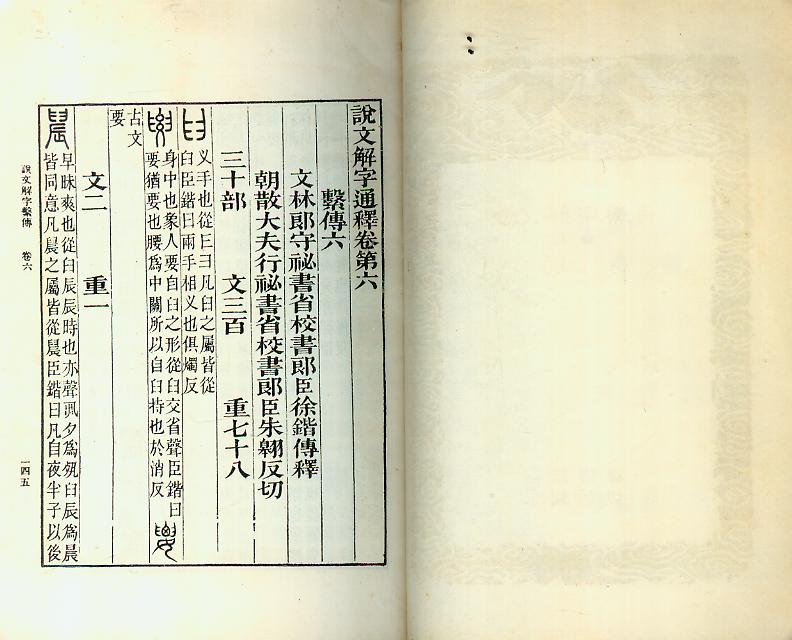 說文解字通釋卷第六
繫傳六
文林郎守祕書省校書郎臣徐鍇傳釋
朝散大夫行祕書省校書郎臣朱翱反切
三十部 文三百 重七十八
𦥑 叉手也從𦥑彐凡𦥑之屬皆從
𦥑臣鍇曰兩手相叉也俱燭反
身中也象人要自𦥑之形從𦥑交省聲臣鍇曰
要猶要也腰為中關所以自𦥑持也於消反
古文
要
文二 重一
晨 早昧爽也從𦥑辰辰時也亦聲夙夕為夙𦥑辰為晨
皆同意凡晨之屬皆從晨臣鍇曰凡自夜半子以後
說文解字繫傳 卷六
一四五